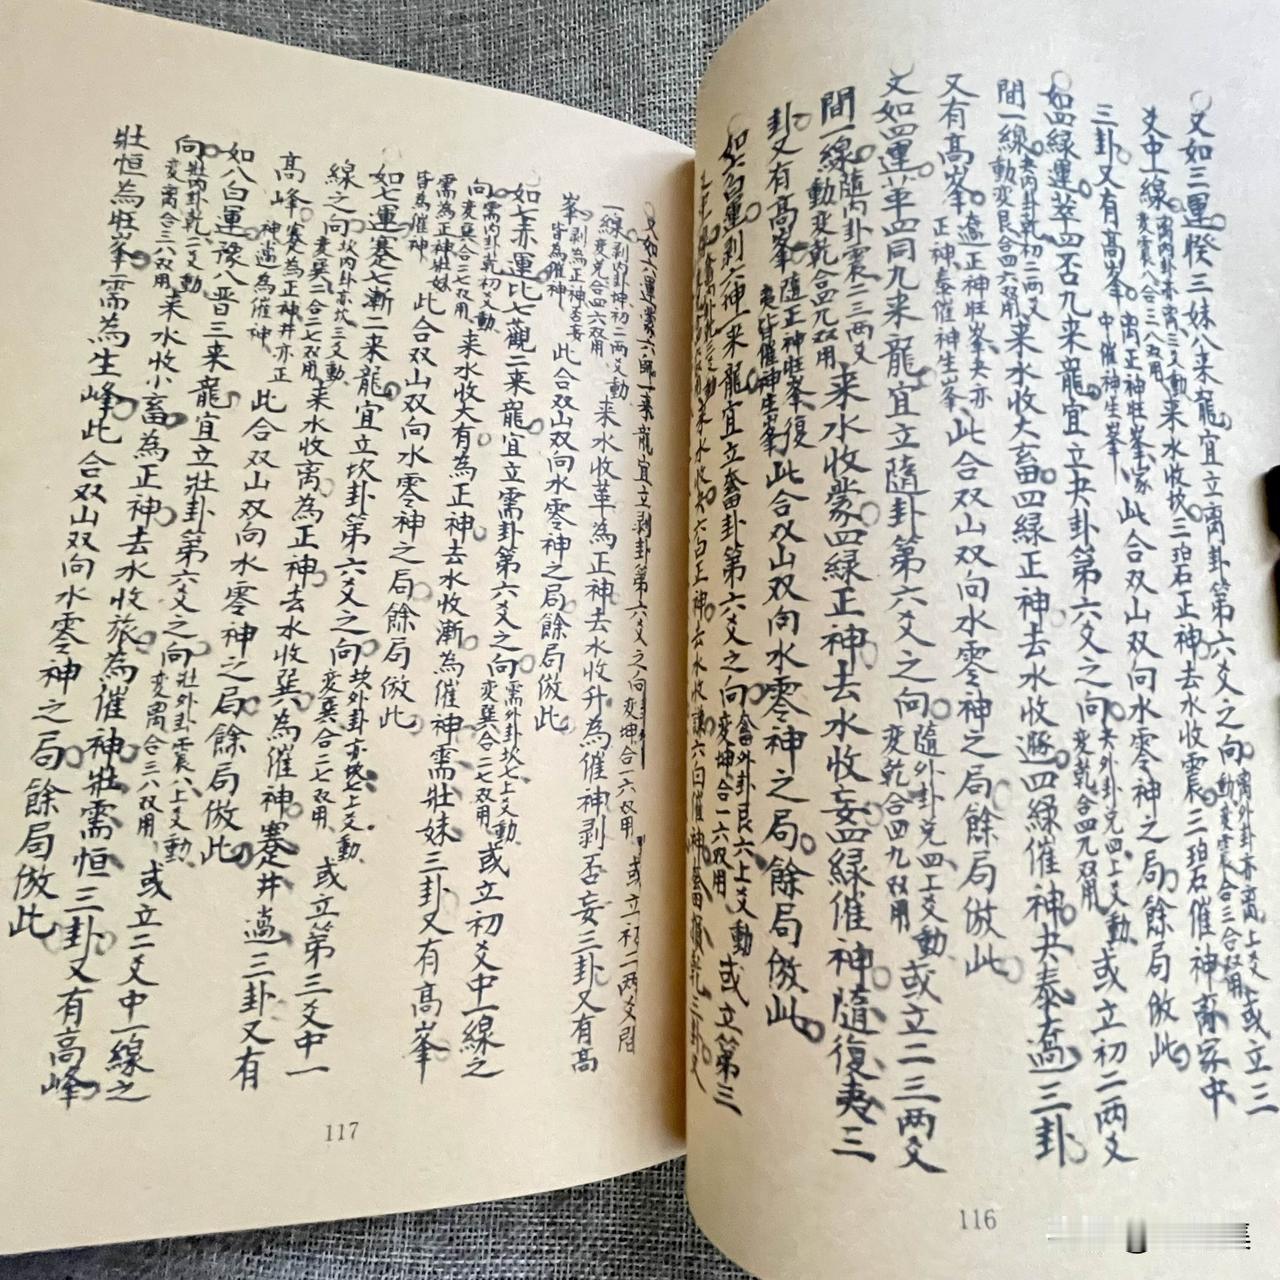 又如三運睽三妹八来龍宜立离卦第六爻之向离外卦亦离上爻動变震合三合双用或立三
爻中一線离内卦亦离三爻動变震八合三八双用来水收坎三珀石正神去水收震三珀石催神离家中
三卦又有高峯离正神壮峯家中催神生峯此合双山双向水零神之局餘局倣此
如四綠運萃四否九来龍宜立夬卦第六爻之向夬外卦兑四上爻動变乾合四九双用或立初二两爻
間一線夬内卦乾初二两爻動变艮合四六双用来水收大畜四綠正神去水收遯四綠催神夬泰過三卦
又有高峯過正神旺峯夬亦正神泰催神生峯此合双山双向水零神之局餘局倣此
又如四運革四同九来龍宜立隨卦第六爻之向隨外卦兑四上爻動变乾合四九双用或立二三两爻
間一線隨内卦震二三两爻動变乾合四九双用来水收蒙四綠正神去水收妄四綠催神隨復夷三
卦又有高峯隨正神旺峯復夷皆催神生峯此合双山双向水零神之局餘局倣此
如六白運剥六神一来龍宜立畬卦第六爻之向畬外卦艮六上爻動变坤合一六双用或立第三
来水收夬六白正神去水收謙六白催神三卦又
又如六運蒙六師一来龍宜立剥卦第六爻之向变坤合一六双用或立初二两爻間
一線剥内卦坤初二两爻動变兑合四六双用来水收革為正神去水收升為催神剥否妄三卦又有高
峯剥為正神否妄皆為催神此合双山双向水零神之局餘局倣此
如七赤運比七觀二来龍宜立需卦第六爻之向需外卦坎七上爻動变巽合二七双用或立初爻中一線之
向需内卦乾初爻動变巽合二七双用来水收大有為正神去水收漸為催神需壮妹三卦又有高峯
需為正神壮妹皆為催神此合双山双向水零神之局餘局倣此
如七運蹇七漸二来龍宜立坎卦第六爻之向坎外卦亦坎七上爻動变巽合二七双用或立第三爻中一
線之向坎内卦亦坎三爻動变巽二合二七双用来水收离為正神去水收巽為催神蹇井過三卦又有
高峰蹇為正神井亦正神過為催神此合双山双向水零神之局餘局倣此
如八白運豫八晋三来龍宜立壮卦第六爻之向壮外卦震八上爻動变离合三八双用或立二爻中一線之
向壮内卦乾二爻動变离合三六双用来水收小畜為正神去水收旅為催神壮需恒三卦又有高峰
壮恒為旺峯需為生峰此合双山双向水零神之局餘局倣此
117
116